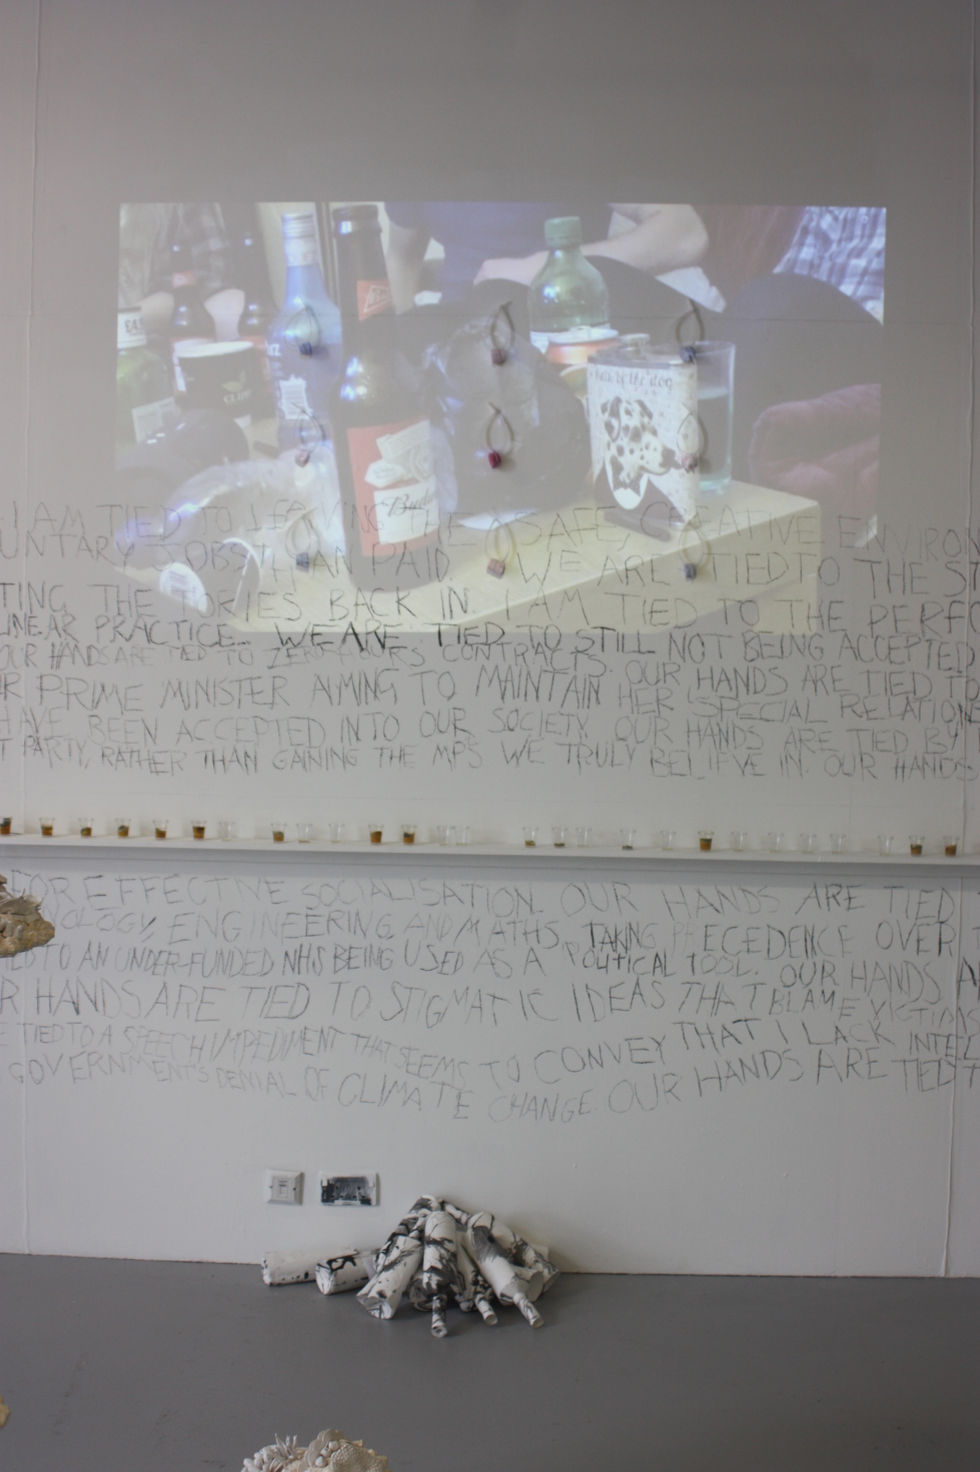 Hair of the dog
Budw
I AM TIED TO LEAVING THE SAFE, CREATIVE ENVIRON
UNTARY JOBS THAN PAID. WE ARE TIED TO THE ST
TING THE TORIES BACK IN. I AM TIED TO THE PERF
LINEAR PRACTICE... WE ARE TIED TO STILL NOT BEING ACCEPTED
OUR HANDS ARE TIED TO ZERO HOURS CONTRACTS. OUR HANDS ARE TIED TO
R PRIME MINISTER AIMING TO MAINTAIN HER 'SPECIAL RELATION
HAVE BEEN ACCEPTED INTO OUR SOCIETY. OUR HANDS ARE TIED BY
T PARTY, RATHER THAN GAINING THE MPS WE TRULY BELIEVE IN. OUR HANDS
FOR EFFECTIVE SOCIALISATION. OUR HANDS ARE TIED
NOLOGY, ENGINEERING AND MATHS, TAKING PRECEDENCE OVER
IED TO AN UNDER-FUNDED NHS BEING USED AS A POLITICAL TOOL. OUR HANDS A
R HANDS ARE TIED TO STIGMATIC IDEAS THAT BLAME VICTIMS
E TIED TO A SPEECH IMPEDIMENT THAT SEEMS TO CONVEY THAT I LACK INTEL
GOVERNMENT'S DENIAL OF CLIMATE CHANGE. OUR HANDS ARE TIED T